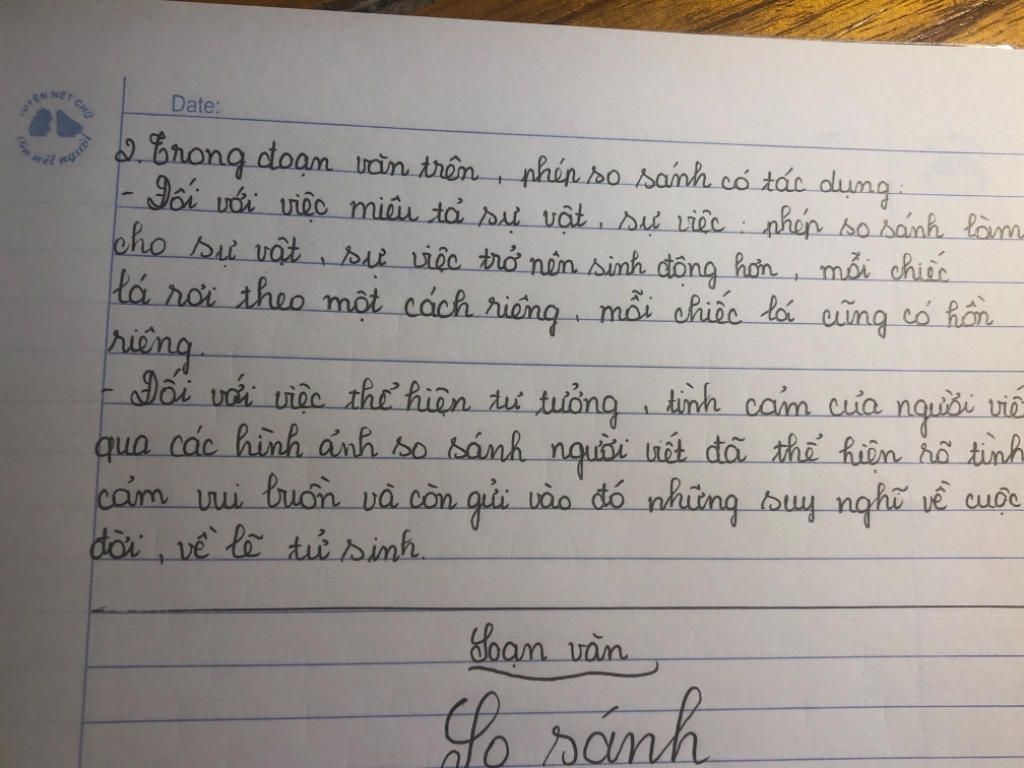 LUYỆN NÉT CHỮ
rèn nết người
Date:
2. Trong đoạn văn trên, phép so sánh có tác dụng:
- Đối với việc miêu tả sự vật, sự việc: phép so sánh làm
cho sự vật, sự việc trở nên sinh động hơn, mỗi chiếc
lá rơi theo một cách riêng, mỗi chiếc lá cũng có hồn
riêng.
- Đối với việc thể hiện tư tưởng, tình cảm của người viế
qua các hình ảnh so sánh người viết đã thể hiện rõ tình
cảm vui buồn và còn gửi vào đó những suy nghĩ về cuộc
đời, về lẽ tử sinh.
Soạn văn
So sánh